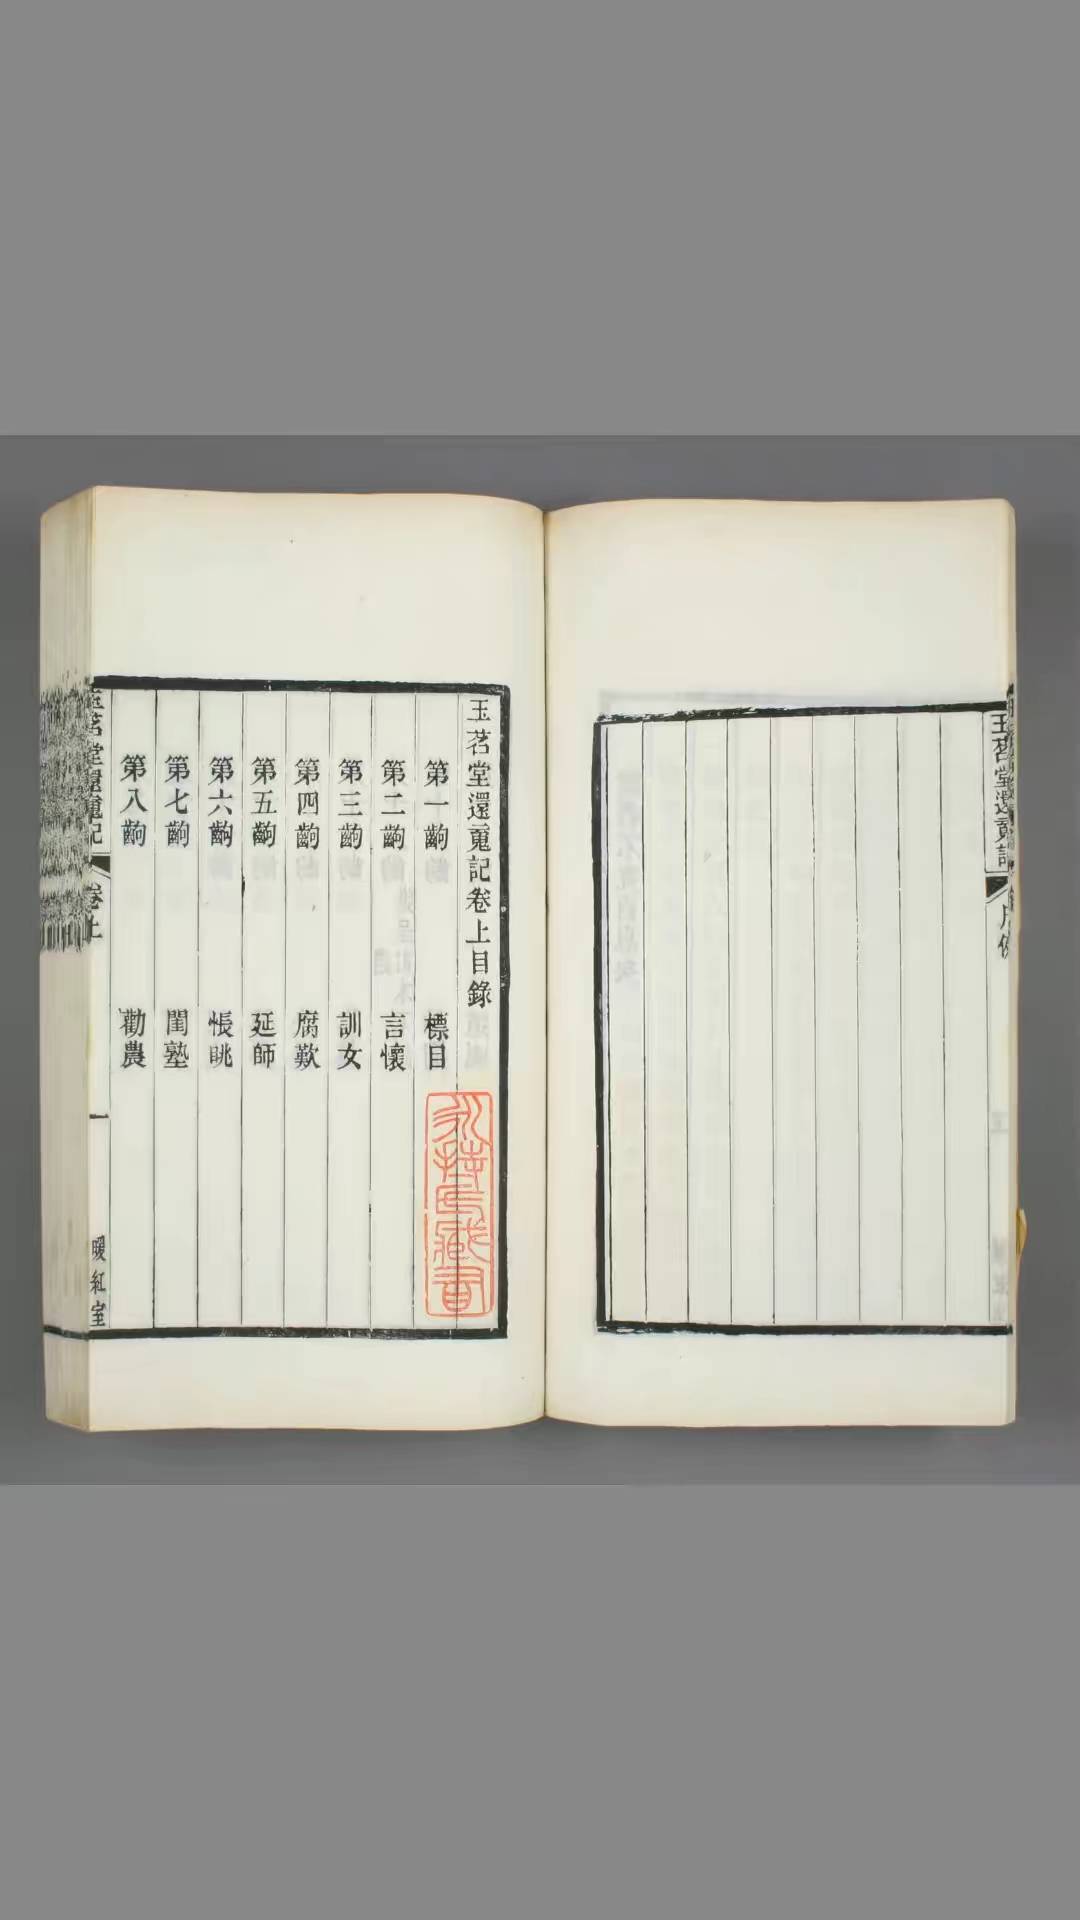 玉茗堂還䰟記卷上目錄
第一齣 標目
第二齣 言懷
第三齣 訓女
第四齣 腐歎
第五齣 延師
第六齣 悵眺
第七齣 閨塾
第八齣 勸農
玉茗堂還䰟記
卷上
一
暖紅室
玉茗堂還䰟記